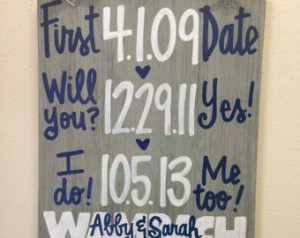 First 4.1.09 Date
Will you? 12.29.11 Yes!
I do! 10.5.13 Me too!
Abby & Sarah